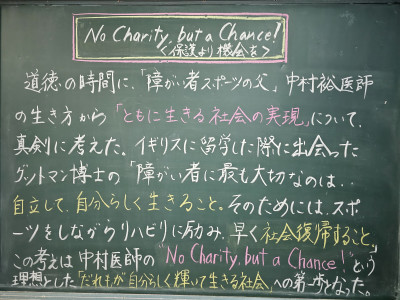 No Charity, but a Chance!
＜保護より機会を＞
道徳の時間に、「障がい者スポーツの父」中村裕医師
の生き方から「ともに生きる社会の実現」について、
真剣に考えた。イギリスに留学した際に出会った
グットマン博士の「障がい者に最も大切なのは‥
自立して、自分らしく生きること。そのためには、スポ
ーツをしながらリハビリに励み、早く社会復帰すること」
この考えは中村医師の"No Charity, but a Chance!"という
理想とした「だれもが自分らしく輝いて生きる社会」への第一歩となった。